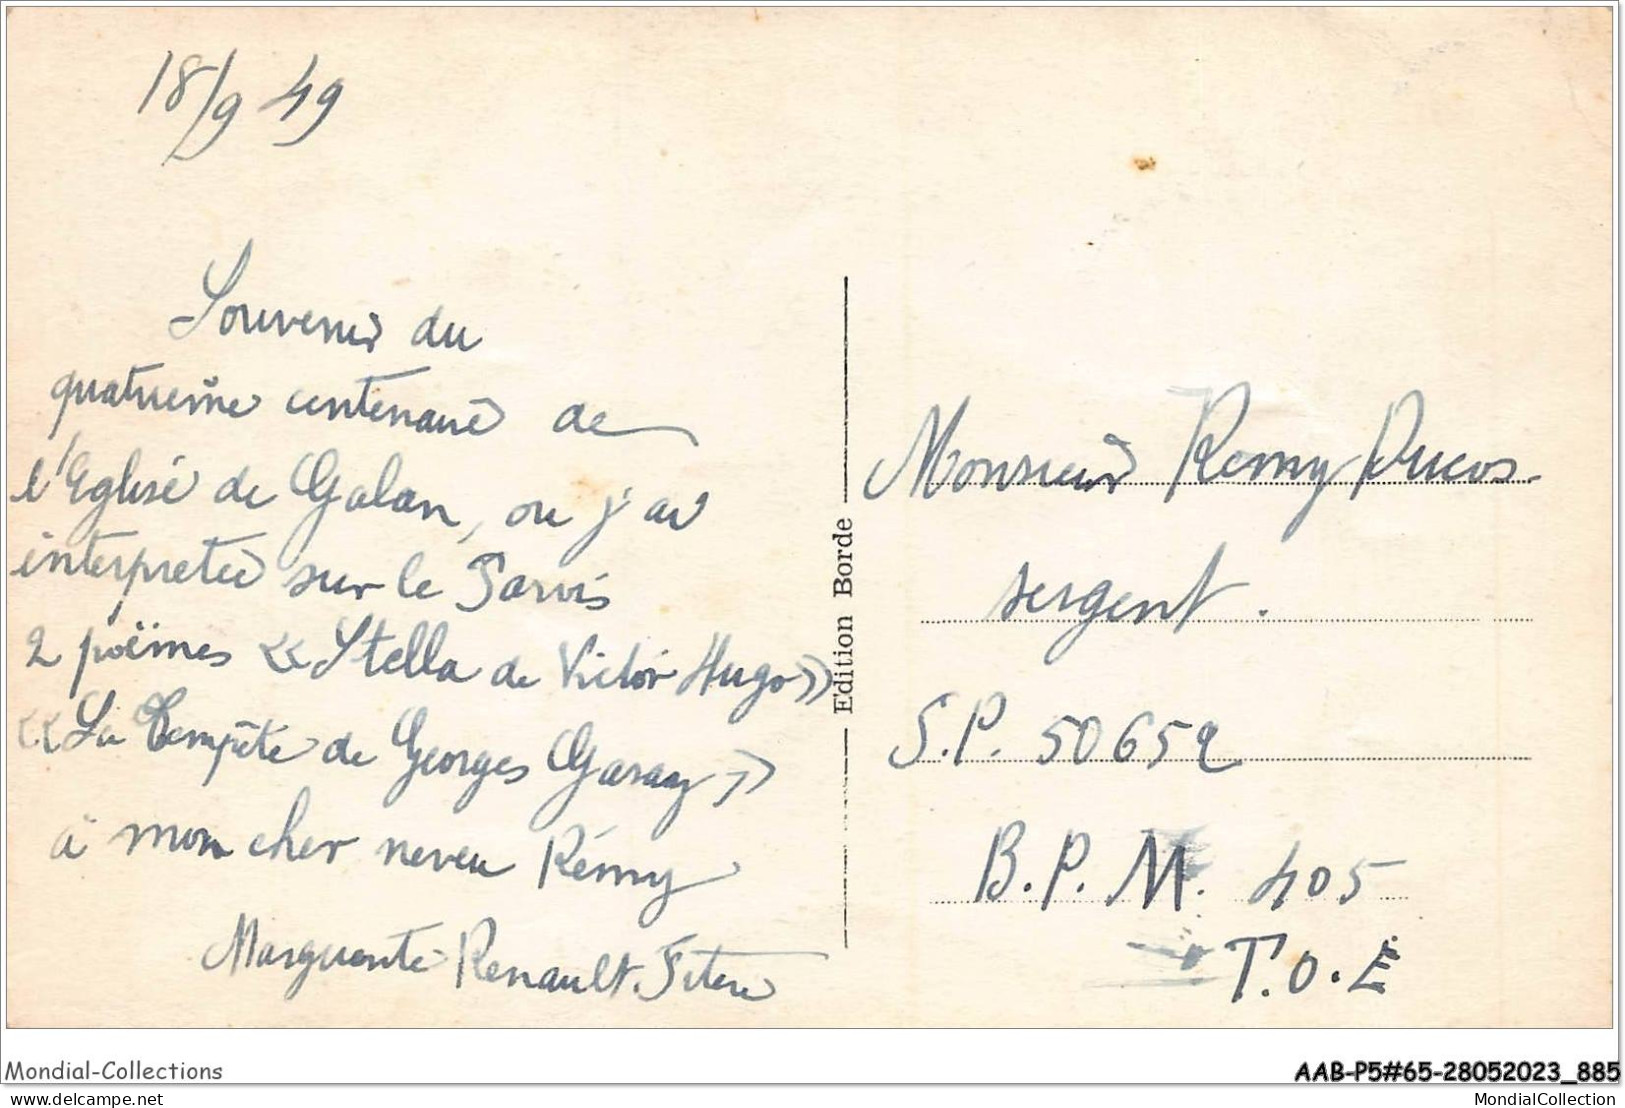 18/9 49
Souvenir du
quatrième centenaire de
l'Eglise de Galan, ou j'ai
interpretée sur le Parvis
2 poëmes « Stella de Victor Hugo »
« La Tempête de Georges Garay »
à mon cher neveu Rémy
Marguerite Renault.
Edition Borde
Monsieur Remy Ducos.
sergent.
S.P. 50652
B.P.M. 405
T.O.E
Mondial-Collections
AAB-P5#65-28052023_885
delcampe.net
MondialCollection